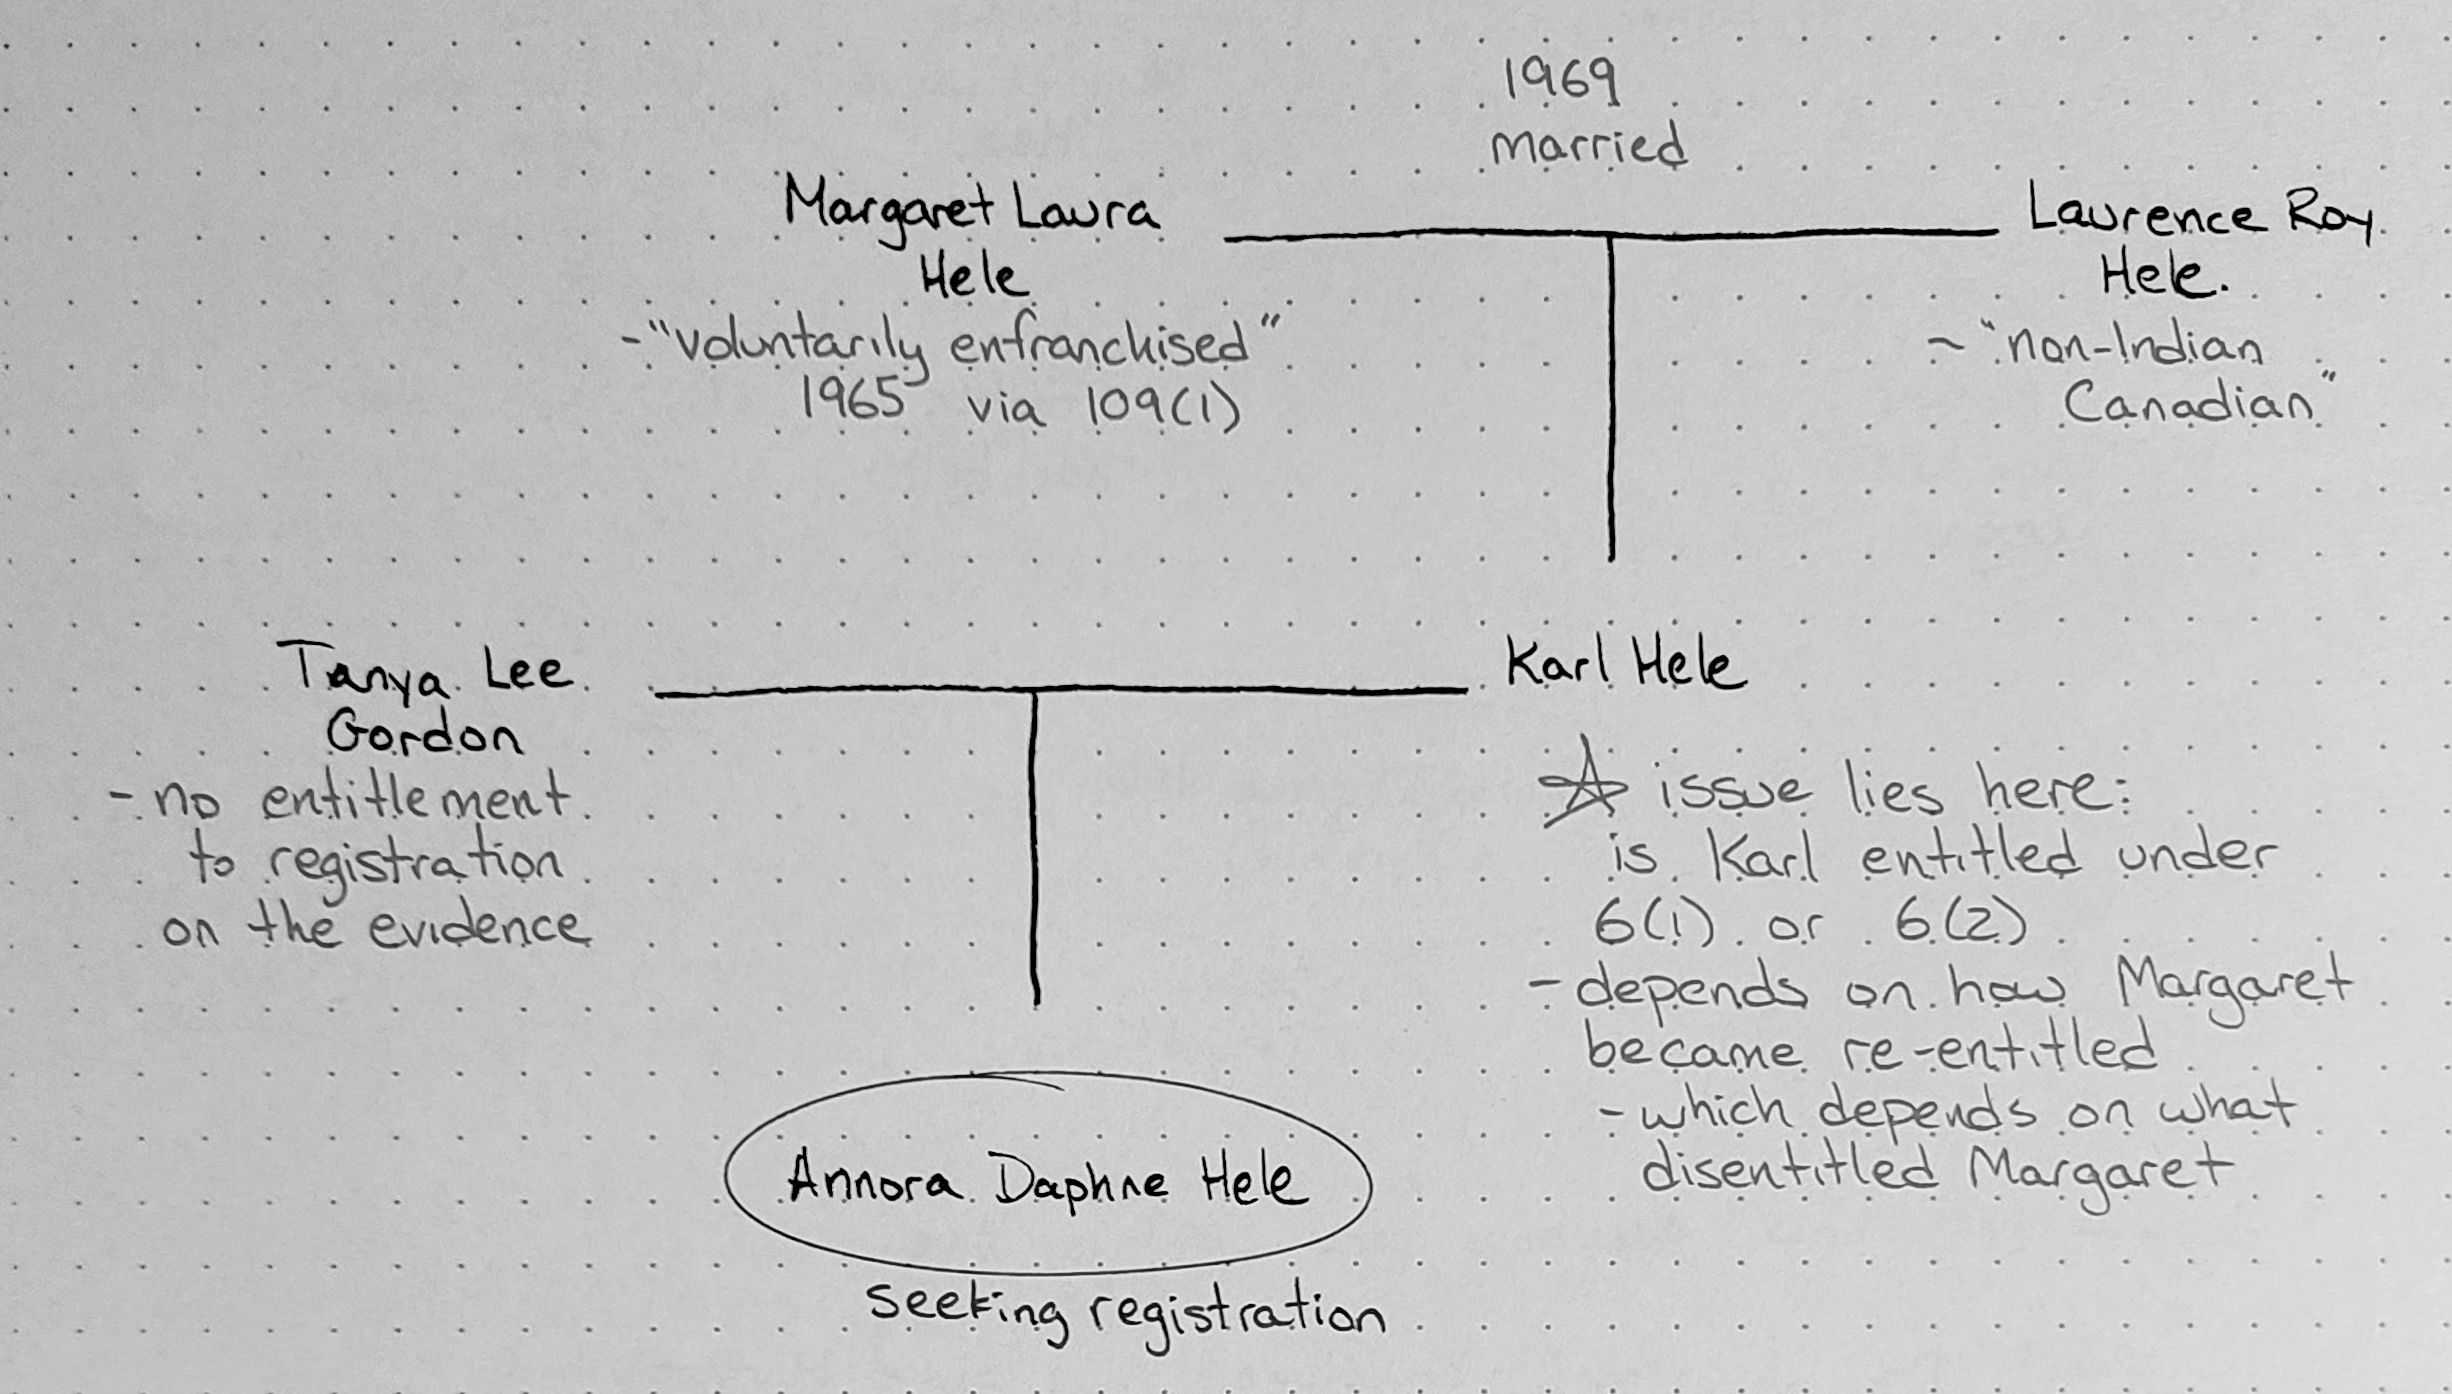 1969
married
Margaret Laura
Hele
- "voluntarily enfranchised"
1965 via 109(1)
Laurence Roy
Hele.
- "non-Indian
Canadian"
Tanya Lee
Gordon
- no entitlement
to registration
on the evidence
Karl Hele
☆ issue lies here:
is Karl entitled under
6(1) or 6(2)
- depends on how Margaret
became re-entitled
- which depends on what
disentitled Margaret
Annora Daphne Hele
seeking registration